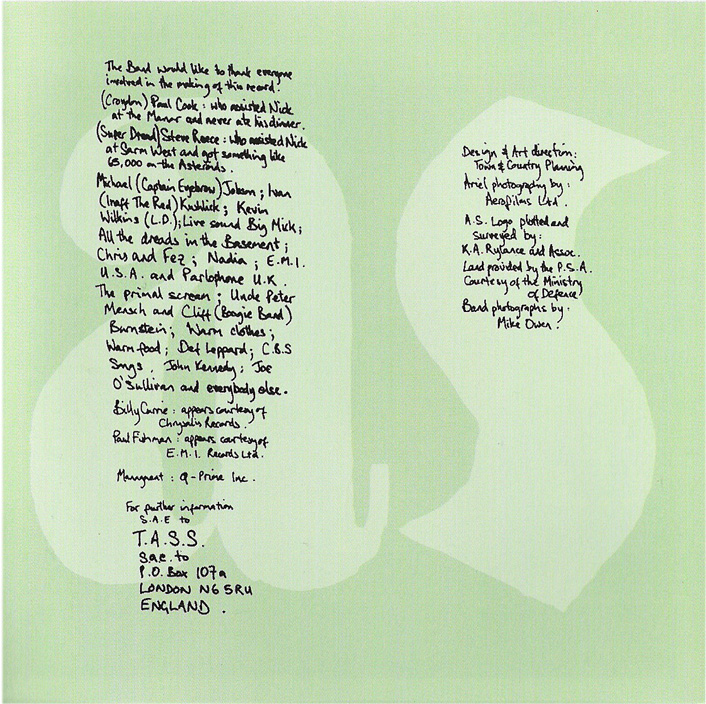 The Band would like to thank everyone
involved in the making of this record.
(Croydon) Paul Cook : who assisted Nick
at the Manor and never ate his dinner.
(Super Dread) Steve Reece : who assisted Nick
at Sarm West and got something like
65,000 on the Asteroids.
Michael (Captain Eyebrow) Jobson ; Ivan
(Ivaft The Red) Kushlick ; Kevin
Wilkins (L.D.) ; Live sound Big Mick ;
All the dreads in the Basement ;
Chris and Fez ; Nadia ; E.M.I.
U.S.A. and Parlophone U.K.
The primal scream ; Uncle Peter
Mensch and Cliff (Boogie Band)
Burnstein ; Warm clothes ;
Warm food ; Def Leppard ; C.B.S
Songs , John Kennedy ; Joe
O'Sullivan and everybody else.
Billy Currie : appears courtesy of
Chrysalis Records .
Paul Fishman : appears courtesy of
E.M.I. Records Ltd.
Management : Q-Prime Inc .
For further information
S.A.E to
T.A.S.S.
S.a.e. to
P.O. Box 107a
LONDON N6 5RU
ENGLAND .
Design & Art direction :
Town & Country Planning
Ariel photography by :
Aerofilms Ltd .
A.S. Logo plotted and
surveyed by :
K.A. Rylance and Assoc.
Land provided by the P.S.A.
Courtesy of the Ministry
of Defence
Band photographs by :
Mike Owen .
as